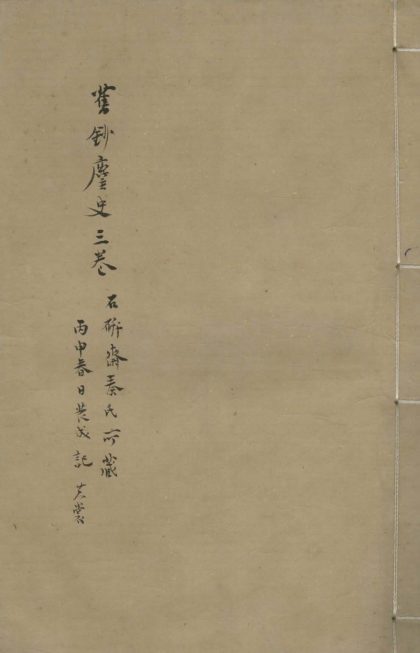 舊鈔麈史三卷
石研齋秦氏所藏
丙申春日裝成記 芷裳